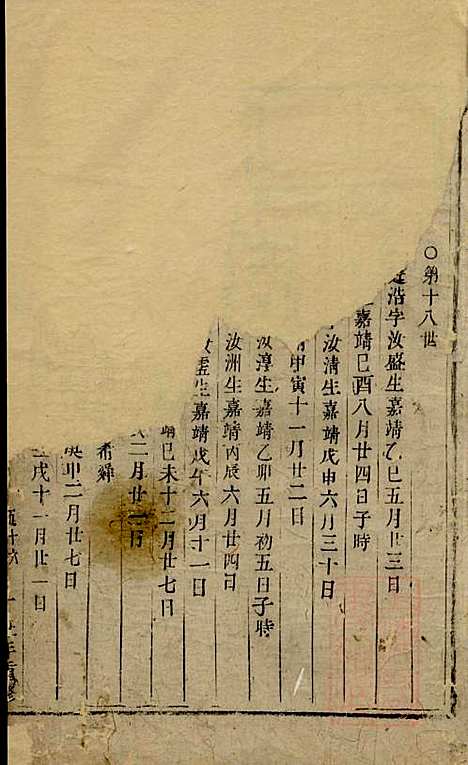 ○第十八世
浩字汝盛生嘉靖乙巳五月廿三日
嘉靖己酉八月廿四日子時
汝清生嘉靖戊申六月三十日
甲寅十一月廿二日
汝淳生嘉靖乙卯五月初五日子時
汝洲生嘉靖丙辰六月廿四日
生嘉靖戊午六月十一日
靖己未十二月廿七日
二月廿二日
希繹
庚申二月廿七日
戌十一月廿一日